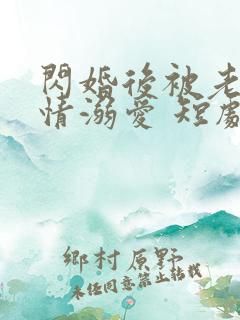 閃婚後被老
情溺愛 短劇
鄉村原野
未经同意禁止转载